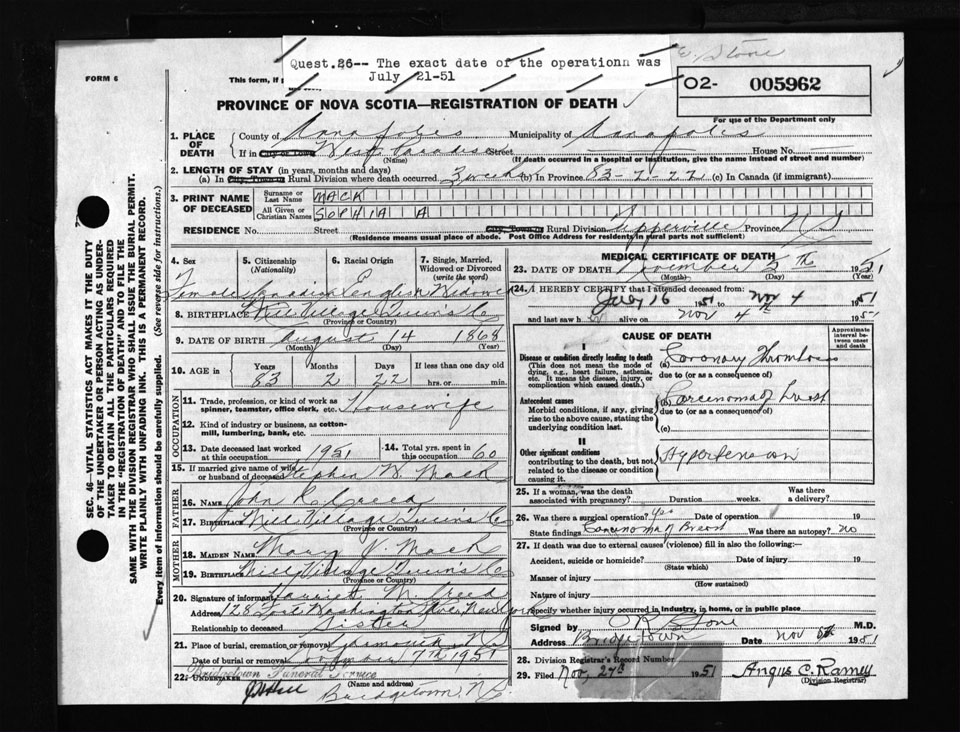 E. Stone
Quest.26-- The exact date of the operationn was
July 21-51
FORM 6
This form, if
02- 005962
PROVINCE OF NOVA SCOTIA—REGISTRATION OF DEATH
For use of the Department only
1. PLACE OF DEATH
County of Annapolis Municipality of Annapolis
If in City or Town West Paradise Street House No.
(Name) (If death occurred in a hospital or institution, give the name instead of street and number)
2. LENGTH OF STAY (in years, months and days)
(a) In City, Town or Rural Division where death occurred 3 weeks (b) In Province 83-2-22 (c) In Canada (if immigrant)
3. PRINT NAME OF DECEASED
Surname or Last Name MACK
All Given or Christian Names SOPHIA A
RESIDENCE No. Street City, Town or Rural Division Province N S
(Residence means usual place of abode. Post Office Address for residents in rural parts not sufficient)
4. Sex
Female
5. Citizenship (Nationality)
Canadian
6. Racial Origin
English
7. Single, Married, Widowed or Divorced (write the word)
Widowed
8. BIRTHPLACE Mill Village Queens Co
(Province or Country)
9. DATE OF BIRTH August 14 1868
(Month) (Day) (Year)
10. AGE in Years Months Days If less than one day old
83 2 22 hrs. or min.
OCCUPATION
11. Trade, profession, or kind of work as spinner, teamster, office clerk, etc. Housewife
12. Kind of industry or business, as cotton-mill, lumbering, bank, etc.
13. Date deceased last worked at this occupation 1951
14. Total yrs. spent in this occupation 60
15. If married give name of wife or husband of deceased Stephen W. Mack
FATHER
16. NAME John R
17. BIRTHPLACE Mill Village Queens Co
(Province or Country)
MOTHER
18. MAIDEN NAME Mary J. Mack
19. BIRTHPLACE Mill Village Queens Co
(Province or Country)
20. Signature of informant Harriett M.
Address 128 Fort Washington Ave New York
Relationship to deceased Sister
21. Place of burial, cremation or removal N.S.
Date of burial or removal November 7th 1951
22. UNDERTAKER Bridgetown Funeral Service
(Name and address)
Bridgetown, N.S.
MEDICAL CERTIFICATE OF DEATH
23. DATE OF DEATH November 5th 1951
(Month) (Day) (Year)
24. I HEREBY CERTIFY that I attended deceased from:
July 16 1951 to Nov 4 1951
and last saw h alive on Nov 4th 1951
CAUSE OF DEATH
Approximate interval between onset and death
I
Disease or condition directly leading to death
(This does not mean the mode of dying, e.g., heart failure, asthenia, etc. It means the disease, injury, or complication which caused death.)
(a) Coronary Thrombosis
due to (or as a consequence of)
Antecedent causes
Morbid conditions, if any, giving rise to the above cause, stating the underlying condition last.
(b) Carcinoma of breast
due to (or as a consequence of)
(c)
II
Other significant conditions
contributing to the death, but not related to the disease or condition causing it.
Hypertension
25. If a woman, was the death associated with pregnancy? Duration weeks. Was there a delivery?
26. Was there a surgical operation? yes Date of operation 19
State findings Carcinoma of Breast Was there an autopsy? no
27. If death was due to external causes (violence) fill in also the following:
Accident, suicide or homicide? Date of injury 19
(State which)
Manner of injury
(How sustained)
Nature of injury
Specify whether injury occurred in industry, in home, or in public place
Signed by Stone M.D.
Address Bridgetown Date Nov 6th 1951
28. Division Registrar's Record Number
29. Filed Nov 27th 1951 Angus C. Ramey
(Division Registrar)
SEC. 46—VITAL STATISTICS ACT MAKES IT THE DUTY
OF THE UNDERTAKER OR PERSON ACTING AS UNDER-
TAKER TO OBTAIN ALL THE PARTICULARS REQUIRED
IN THE "REGISTRATION OF DEATH" AND TO FILE THE
SAME WITH THE DIVISION REGISTRAR WHO SHALL ISSUE THE BURIAL PERMIT.
WRITE PLAINLY WITH UNFADING INK. THIS IS A PERMANENT RECORD.
Every item of information should be carefully supplied. (See reverse side for instructions.)